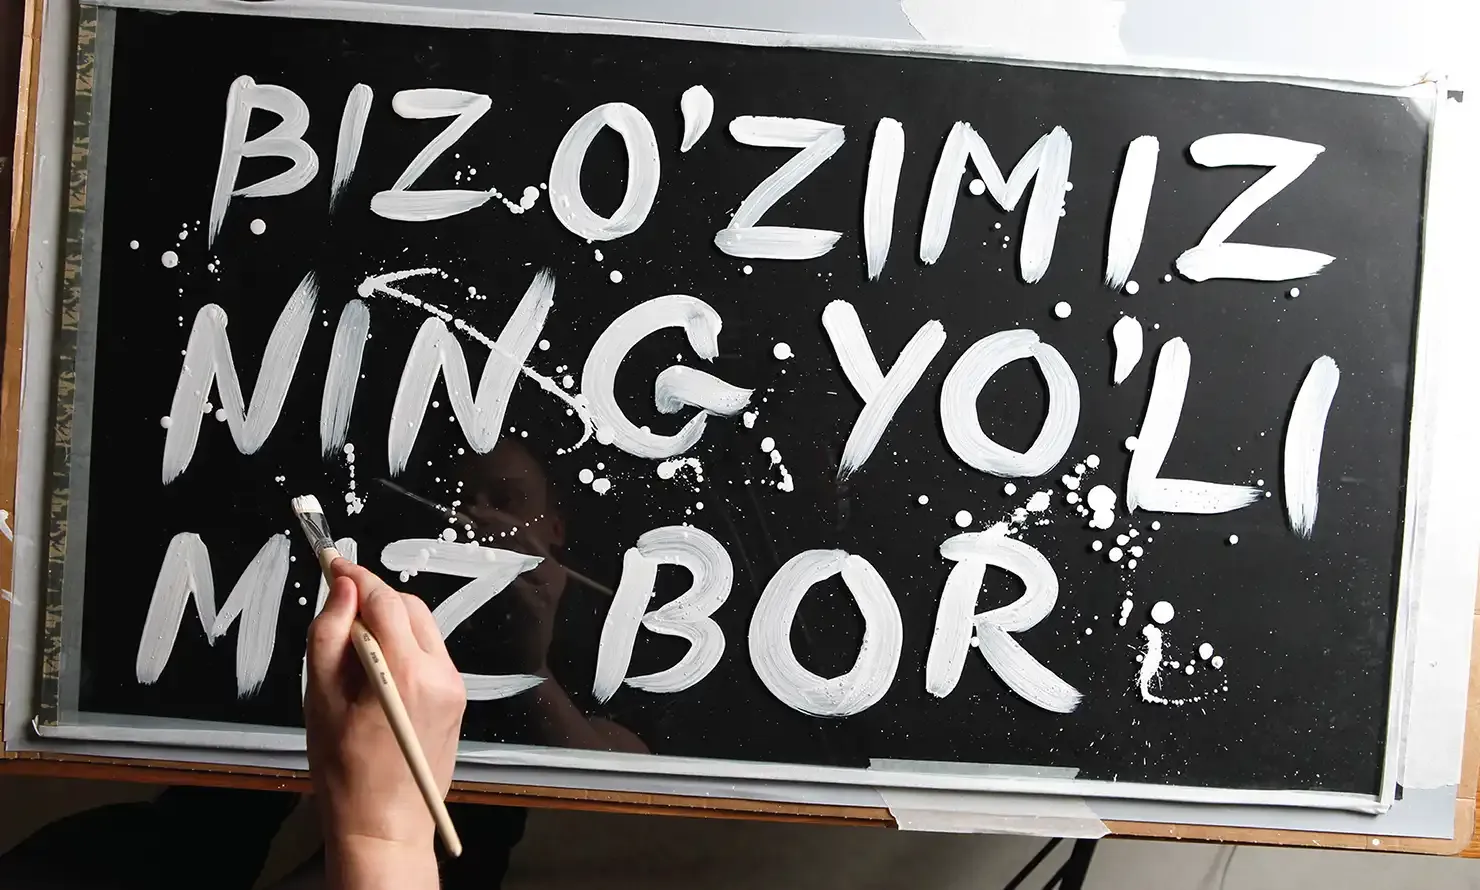 BIZ O'ZIMIZ
NING YO'LI
MIZ BOR